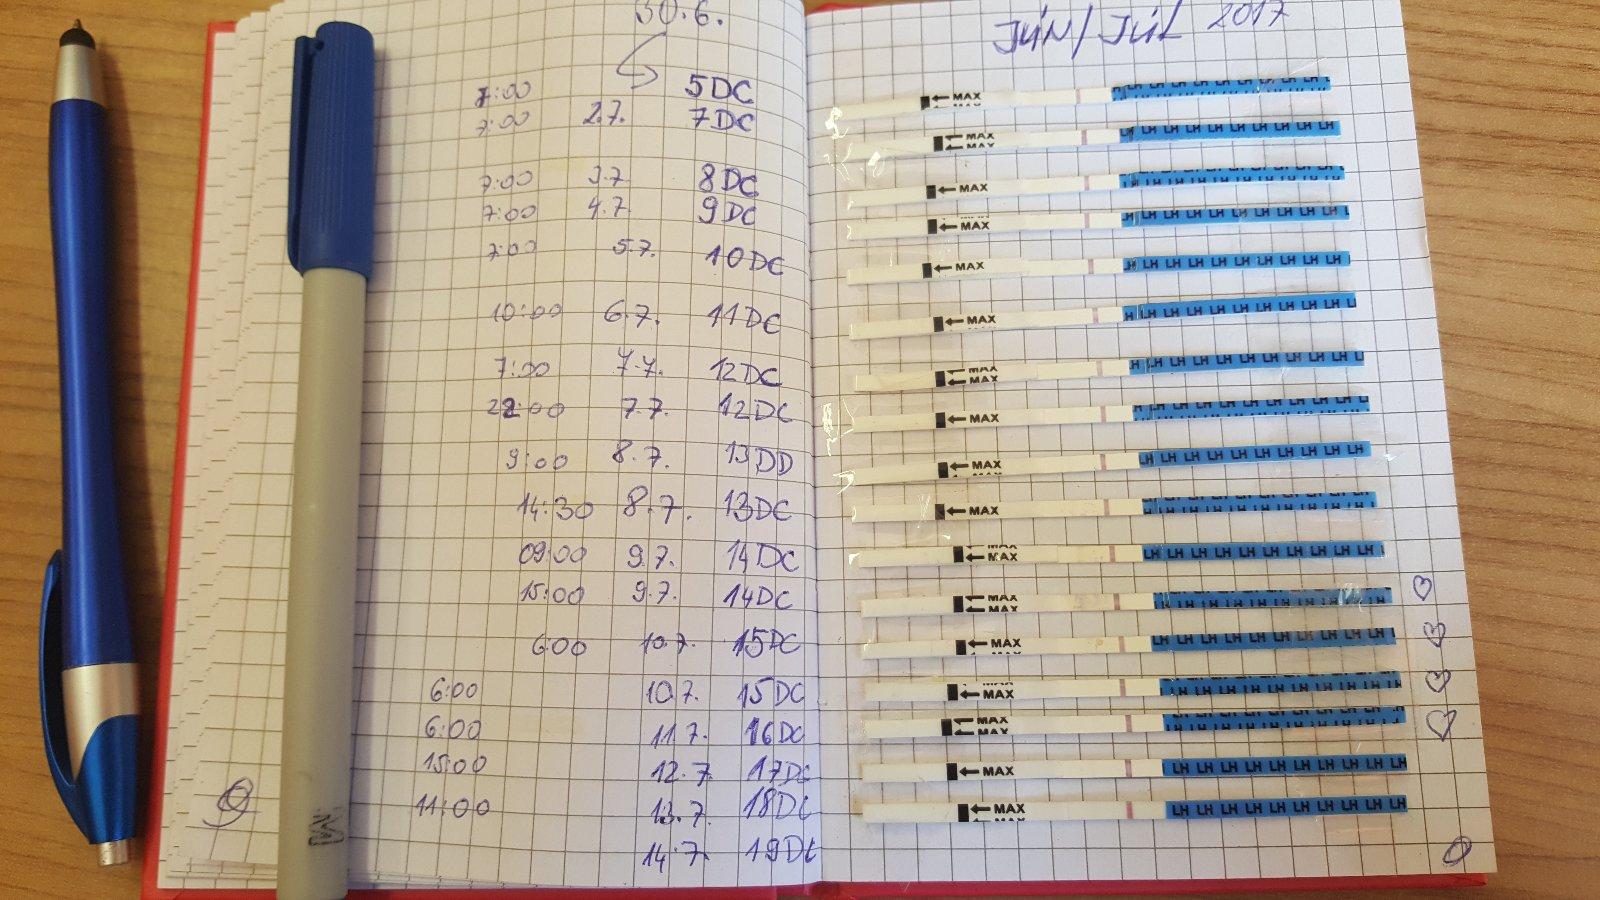 30.6.
7:00 5DC
7:00 2.7. 7DC
7:00 3.7 8DC
7:00 4.7 9DC
7:00 5.7. 10DC
10:00 6.7. 11DC
7:00 7.7. 12DC
22:00 7.7. 12DC
9:00 8.7. 13DD
14:30 8.7. 13DC
09:00 9.7. 14DC
15:00 9.7. 14DC
6:00 10.7. 15DC
6:00 10.7. 15DC
6:00 11.7. 16DC
15:00 12.7 17DC
11:00 13.7. 18DC
14.7. 19DC
JÚN/JÚL 2017
MAX LH LH LH LH LH LH LH LH LH
MAX MAX LH LH LH LH LH LH LH LH LH
MAX LH LH LH LH LH LH LH LH LH
MAX LH LH LH LH LH LH LH LH LH
MAX LH LH LH LH LH LH LH LH LH
MAX LH LH LH LH LH LH LH LH LH
MAX MAX LH LH LH LH LH LH LH LH LH
MAX LH LH LH LH LH LH LH LH LH
MAX LH LH LH LH LH LH LH LH LH
MAX LH LH LH LH LH LH LH LH LH
MAX MAX LH LH LH LH LH LH LH LH LH
MAX MAX LH LH LH LH LH LH LH LH LH
MAX LH LH LH LH LH LH LH LH LH LH
MAX LH LH LH LH LH LH LH LH LH
MAX MAX LH LH LH LH LH LH LH LH LH
MAX LH LH LH LH LH LH LH LH LH LH
MAX LH LH LH LH LH LH LH LH LH LH